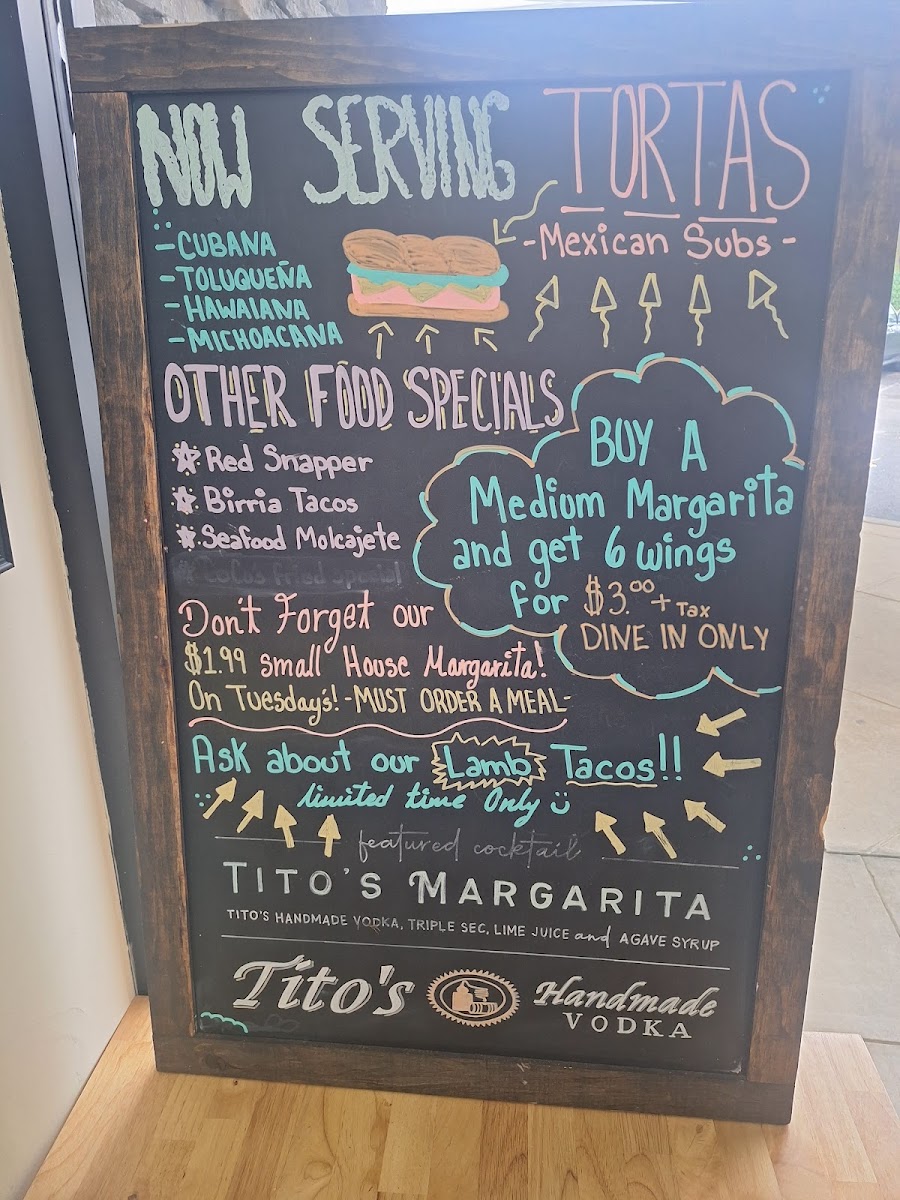 NOW SERVING TORTAS
-Mexican Subs-
-CUBANA
-TOLUQUEÑA
-HAWAIANA
-MICHOACANA
OTHER FOOD SPECIALS
Red Snapper
Birria Tacos
Seafood Molcajete
CoCo's fried special
BUY A
Medium Margarita
and get 6 wings
for $3.00 + Tax
DINE IN ONLY
Don't Forget our
$1.99 small House Margarita!
On Tuesday's! -MUST ORDER A MEAL-
Ask about our Lamb Tacos!!
limited time Only
featured cocktail
TITO'S MARGARITA
TITO'S HANDMADE VODKA, TRIPLE SEC, LIME JUICE and AGAVE SYRUP
Tito's Handmade
VODKA